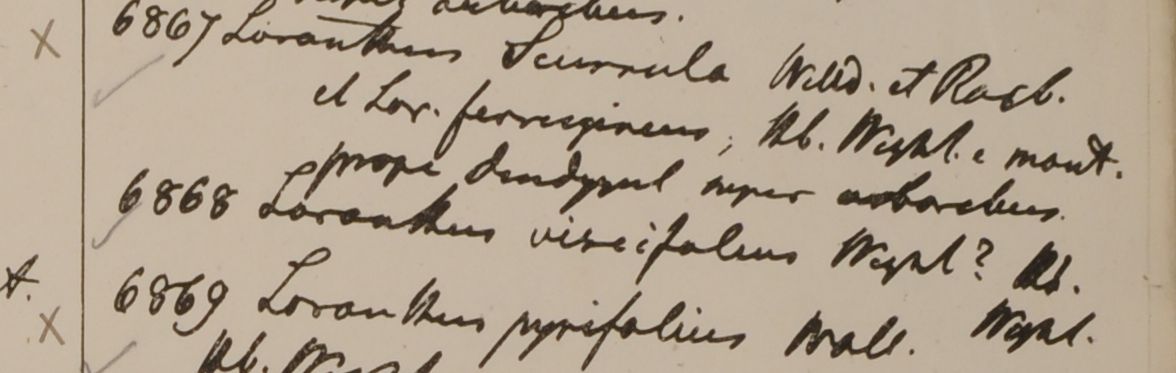 arboribus.
6867 Loranthus Scurrula Willd. et Roxb.
et Lor. ferrugineus, Hb. Wight. e mont.
prope Dindygul super arboribus.
6868 Loranthus viscifolius Wight? Hb.
Wight.
6869 Loranthus pyrifolius Wall.
Hb. Wight